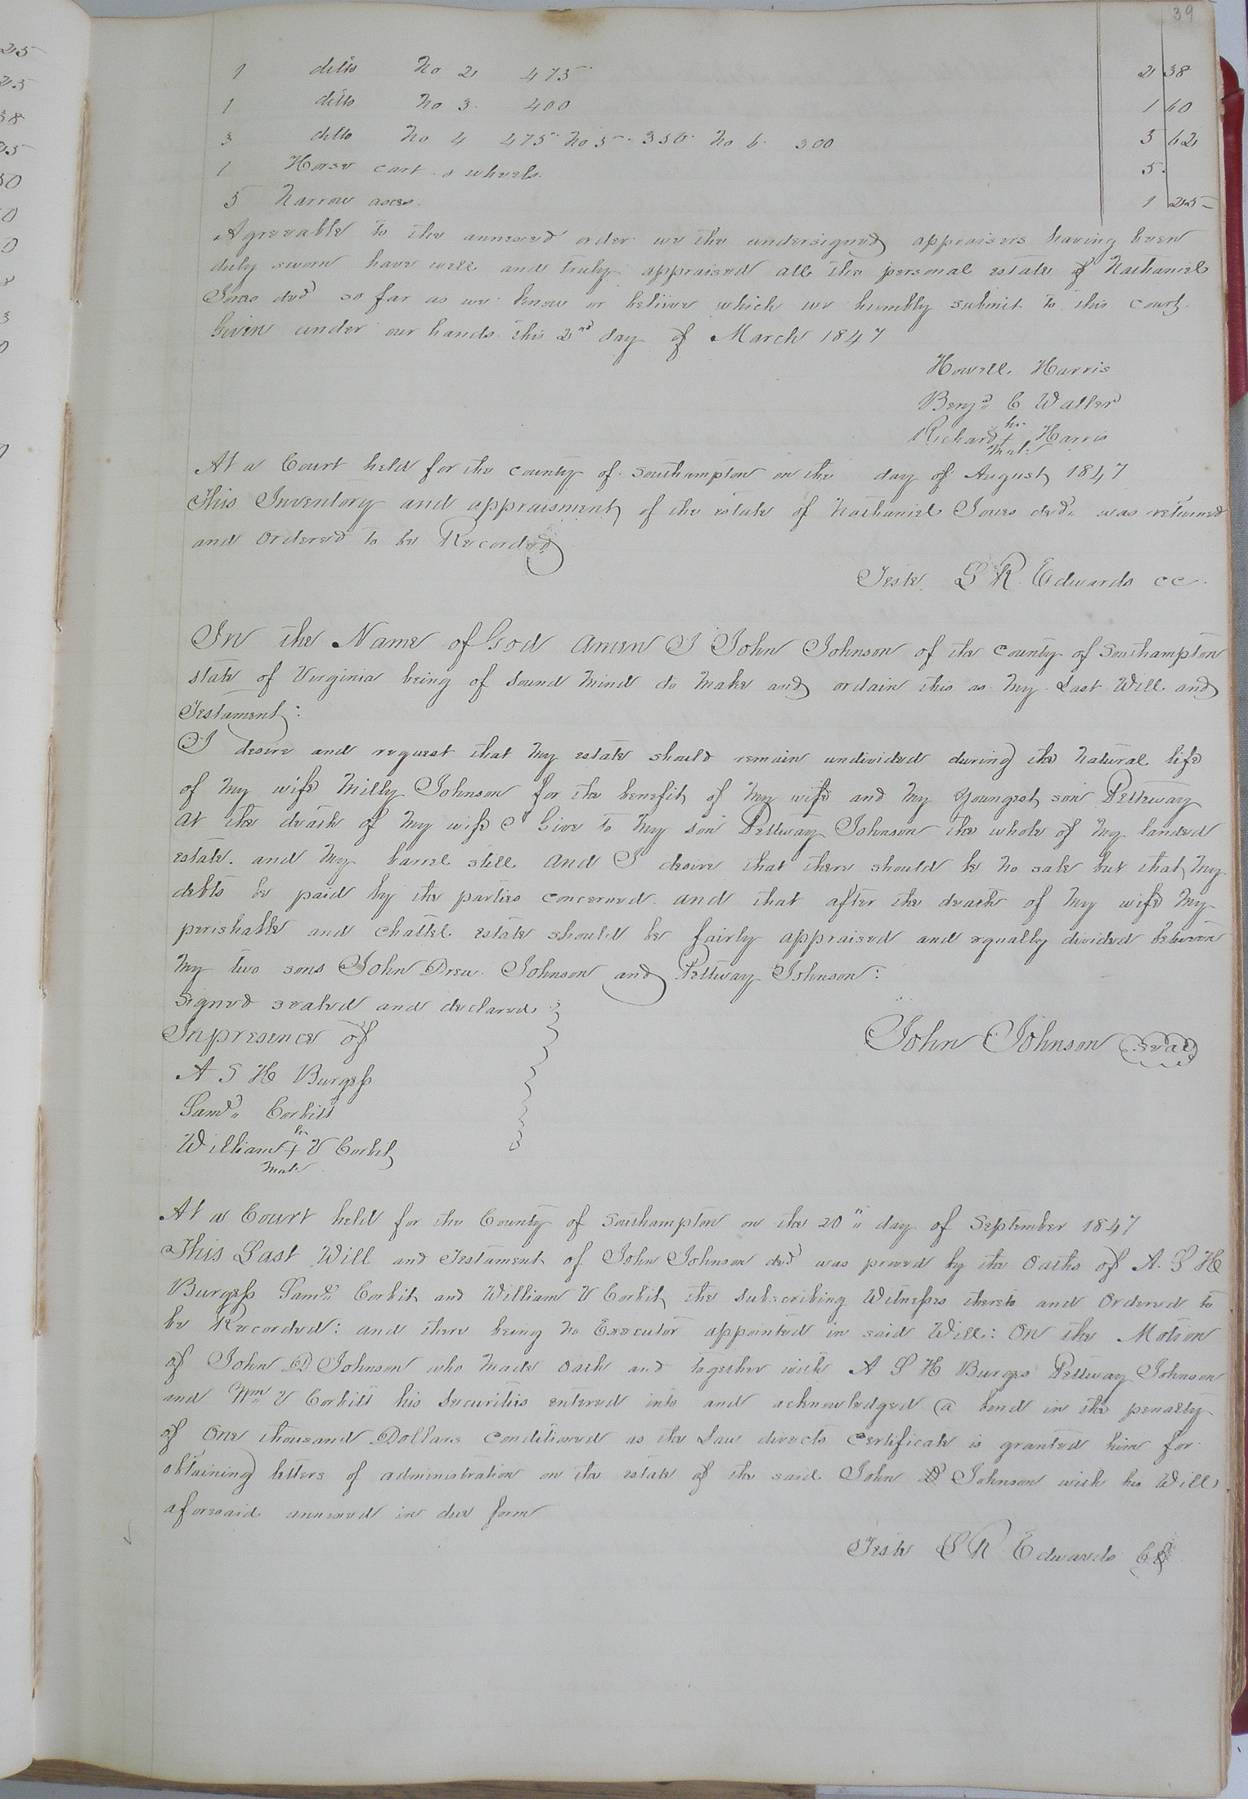 39
1 ditto No 2 475 2 38
1 ditto No 3. 400 1 60
3 ditto No 4 475 No 5 350 No 6 300 3 62
1 Horse cart & wheels 5.
5 Narrow axes 1 25
Agreeable to the annexed order we the undersigned appraisers having been
duly sworn have well and truly appraised all the personal estate of Nathaniel
decd so far as we know or believe which we humbly submit to this court
Given under our hands this 2nd day of March 1847
Howell Harris
Benja C Waller
his
Richard + Harris
mark
At a Court held for the county of Southampton on the day of August 1847
This Inventory and appraisment of the estate of Nathaniel decd. was returned
and Ordered to be Recorded
Teste L R Edwards cc.
In the Name of God Amen I John Johnson of the county of Southampton
state of Virginia being of sound mind do make and ordain this as my Last Will and
Testament:
I desire and request that my estate should remain undivided during the natural life
of my wife Milly Johnson for the benefit of my wife and my youngest son Pettway
at the death of my wife I Give to my son Pettway Johnson the whole of my landed
estate. and my barrel still and I desire that there should be no sale but that my
debts be paid by the parties concerned and that after the death of my wife my
perishable and chattel estate should be fairly appraised and equally divided between
my two sons John Drew Johnson and Pettway Johnson:
Signed sealed and declared
In presence of
John Johnson Seal
A S H Burgess
Saml. Corbitt
his
William + V Corbit
mark
At a Court held for the County of Southampton on the 20" day of September 1847
This Last Will and Testament of John Johnson decd was proved by the oaths of A. S H
Burgess Saml. Corbit and William V Corbit the subscribing Witnesses thereto and Ordered to
be Recorded: and there being no Executor appointed in said Will: On the Motion
of John D Johnson who made oath and together with A S H Burges Pettway Johnson
and Wm V Corbitt his securities entered into and acknowledged a bond in the penalty
of One thousand Dollars conditioned as the Law directs certificate is granted him for
obtaining letters of administration on the estate of the said John Johnson with his Will
aforesaid annexed in due form
Teste L R Edwards